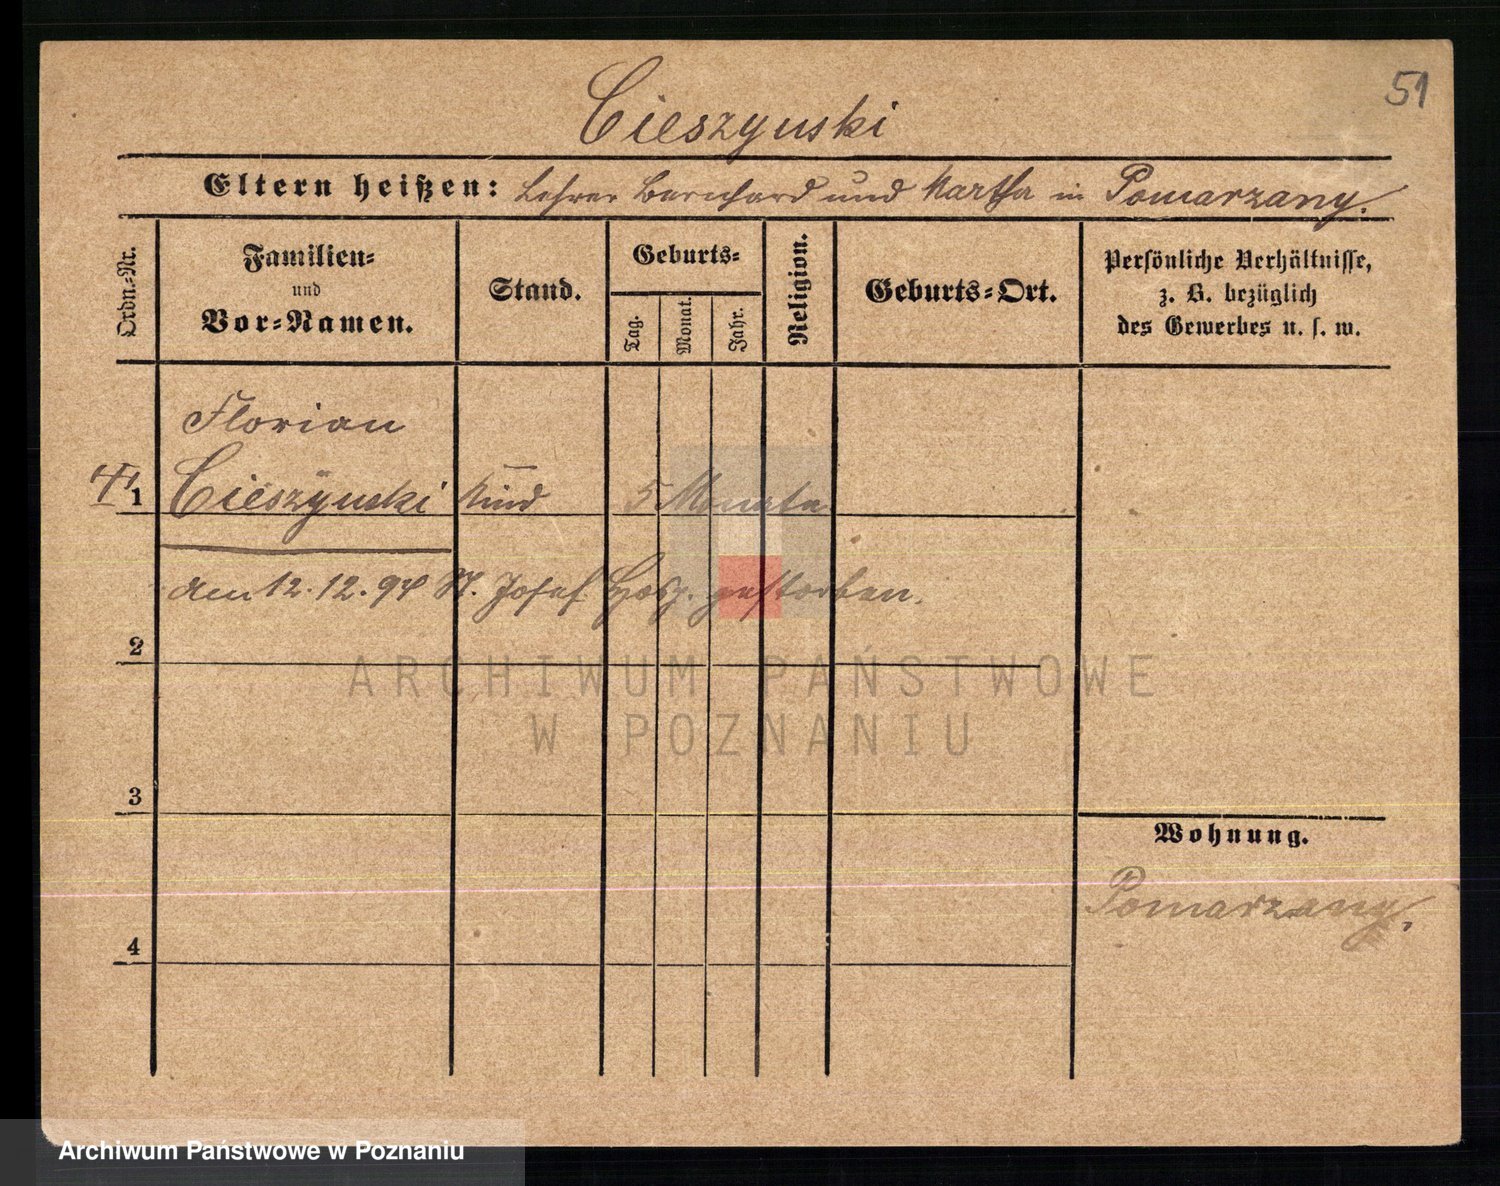 51
Cieszynski
Eltern heißen: Lehrer Bernhard und Martha in Pomarzany.
Ordn.-Nr.
Familien-
und
Vor-Namen.
Stand.
Geburts-
Tag.
Monat.
Jahr.
Religion.
Geburts-Ort.
Persönliche Verhältnisse,
z. B. bezüglich
des Gewerbes u. s. w.
Florian
1 Cieszynski Kind 5 Monate
am 12.12.94 St. Josef Hosp. gestorben.
2
3
4
Wohnung.
Pomarzany,
ARCHIWUM PAŃSTWOWE
W POZNANIU
Archiwum Państwowe w Poznaniu